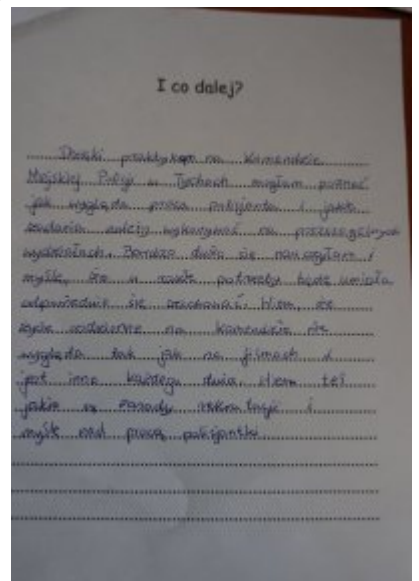 I co dalej?
Dzięki praktykom na Komendzie
Miejskiej Policji w Tychach mogłam poznać
jak wygląda praca policjanta i jakie
zadania należy wykonywać na poszczególnych
wydziałach. Bardzo dużo się nauczyłam i
myślę, że w razie potrzeby będę umiała
odpowiednio się zachować. Wiem, że
życie codzienne na komendzie nie
wygląda tak jak na filmach i
jest inne każdego dnia. Wiem też
jakie są zasady rekrutacji i
myślę nad pracą policjantki